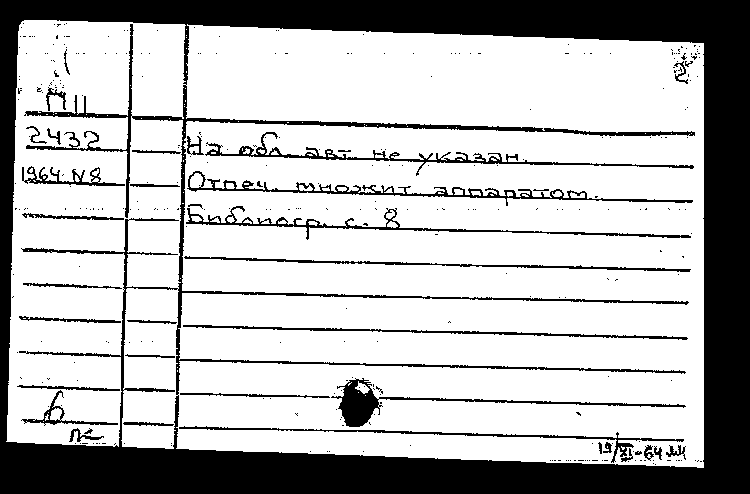 П11
2432
На обл. авт. не указан.
1964 N8
Отпеч. множит. аппаратом.
Библиогр. с. 8
6
19/XI-64